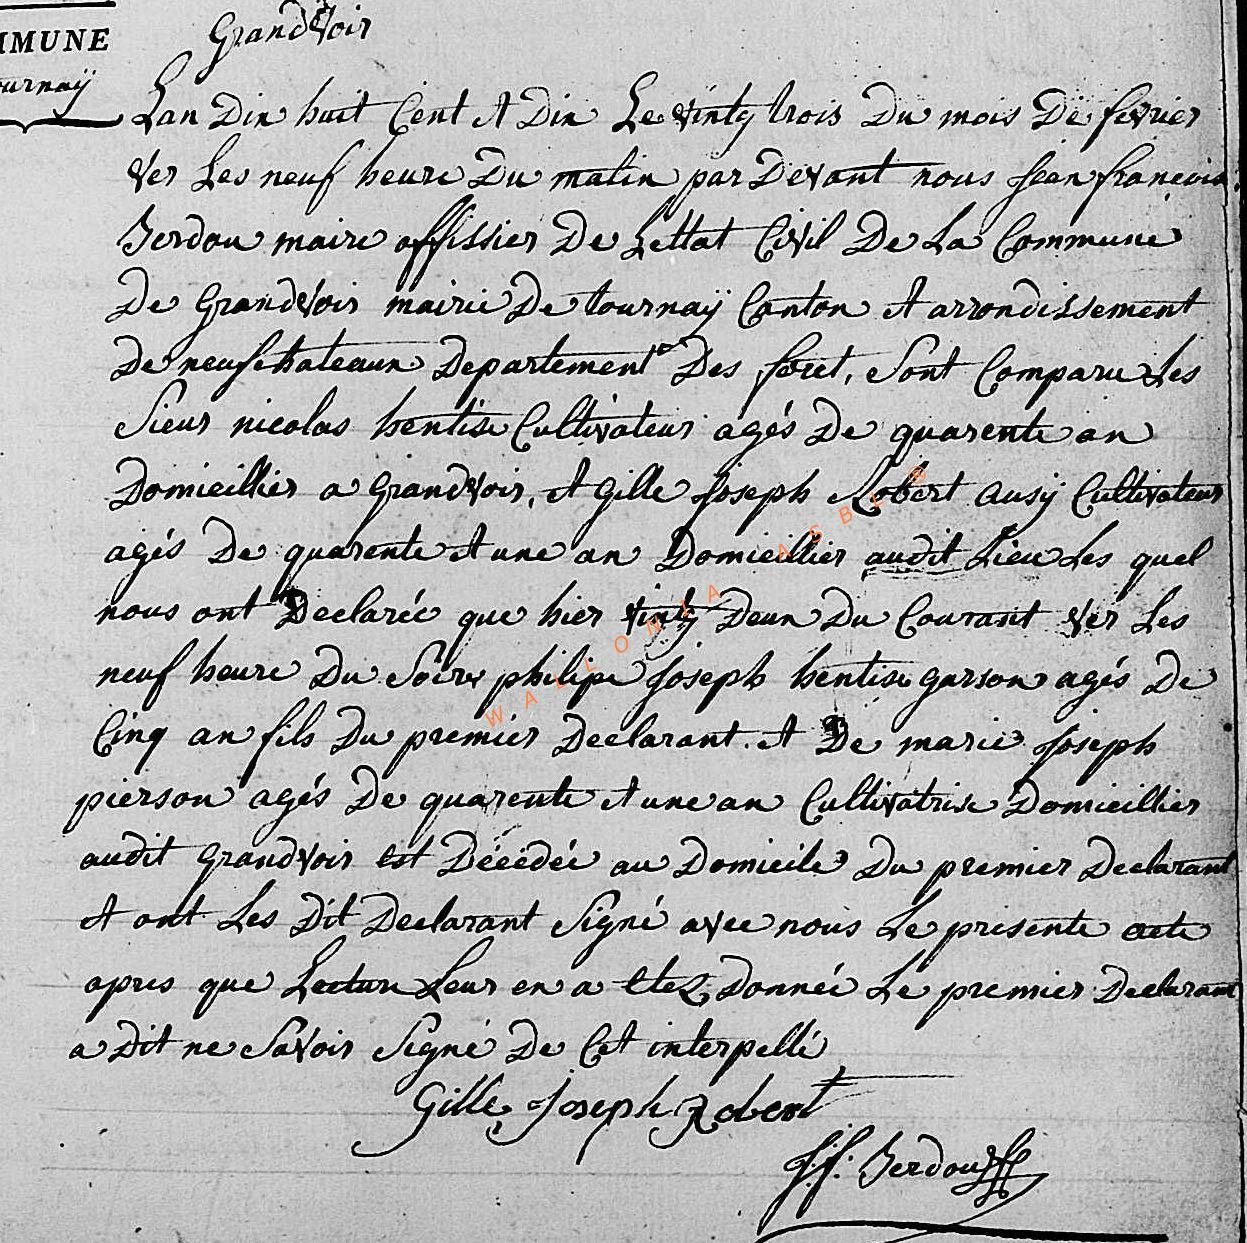 MMUNE
ournaÿ
Grandvoir
Lan Dix huit Cent et Dix Le vintg trois Du mois De fevrier
ver Les neuf heure Du matin par Devant nous Jean francois
Berdou maire offissier De Lettat Civil De La Commune
De Grandvoir mairie De tournaÿ Canton et arrondissement
De neufchateaux Departement Des foret, sont Comparu Les
Sieur nicolas hentise Cultivateur agés De quarente an
Domicillier a Grandvoir, et Gille Joseph Robert ausÿ Cultivateur
agés De quarente et une an Domicillier audit Lieu Les quel
nous ont Declareé que hier vintg Deux Du Courant ver Les
neuf heure Du Soire philipe Joseph hentise garson agés De
Cinq an fils Du premier Declarant. et De marie Joseph
pierson agés De quarente et une an Cultivatrise Domicillier
audit Grandvoir est Décédée au Domicile Du premier Declarant
et ont Les Dit Declarant Signé avec nous Le presente acte
apres que Lecture Leur en a etez Donneé Le premier Declarant
a Dit ne Savoir Signé De Cet interpellé
Gille Joseph Robert
J.f. Berdou
WALLONIA ASBL ®